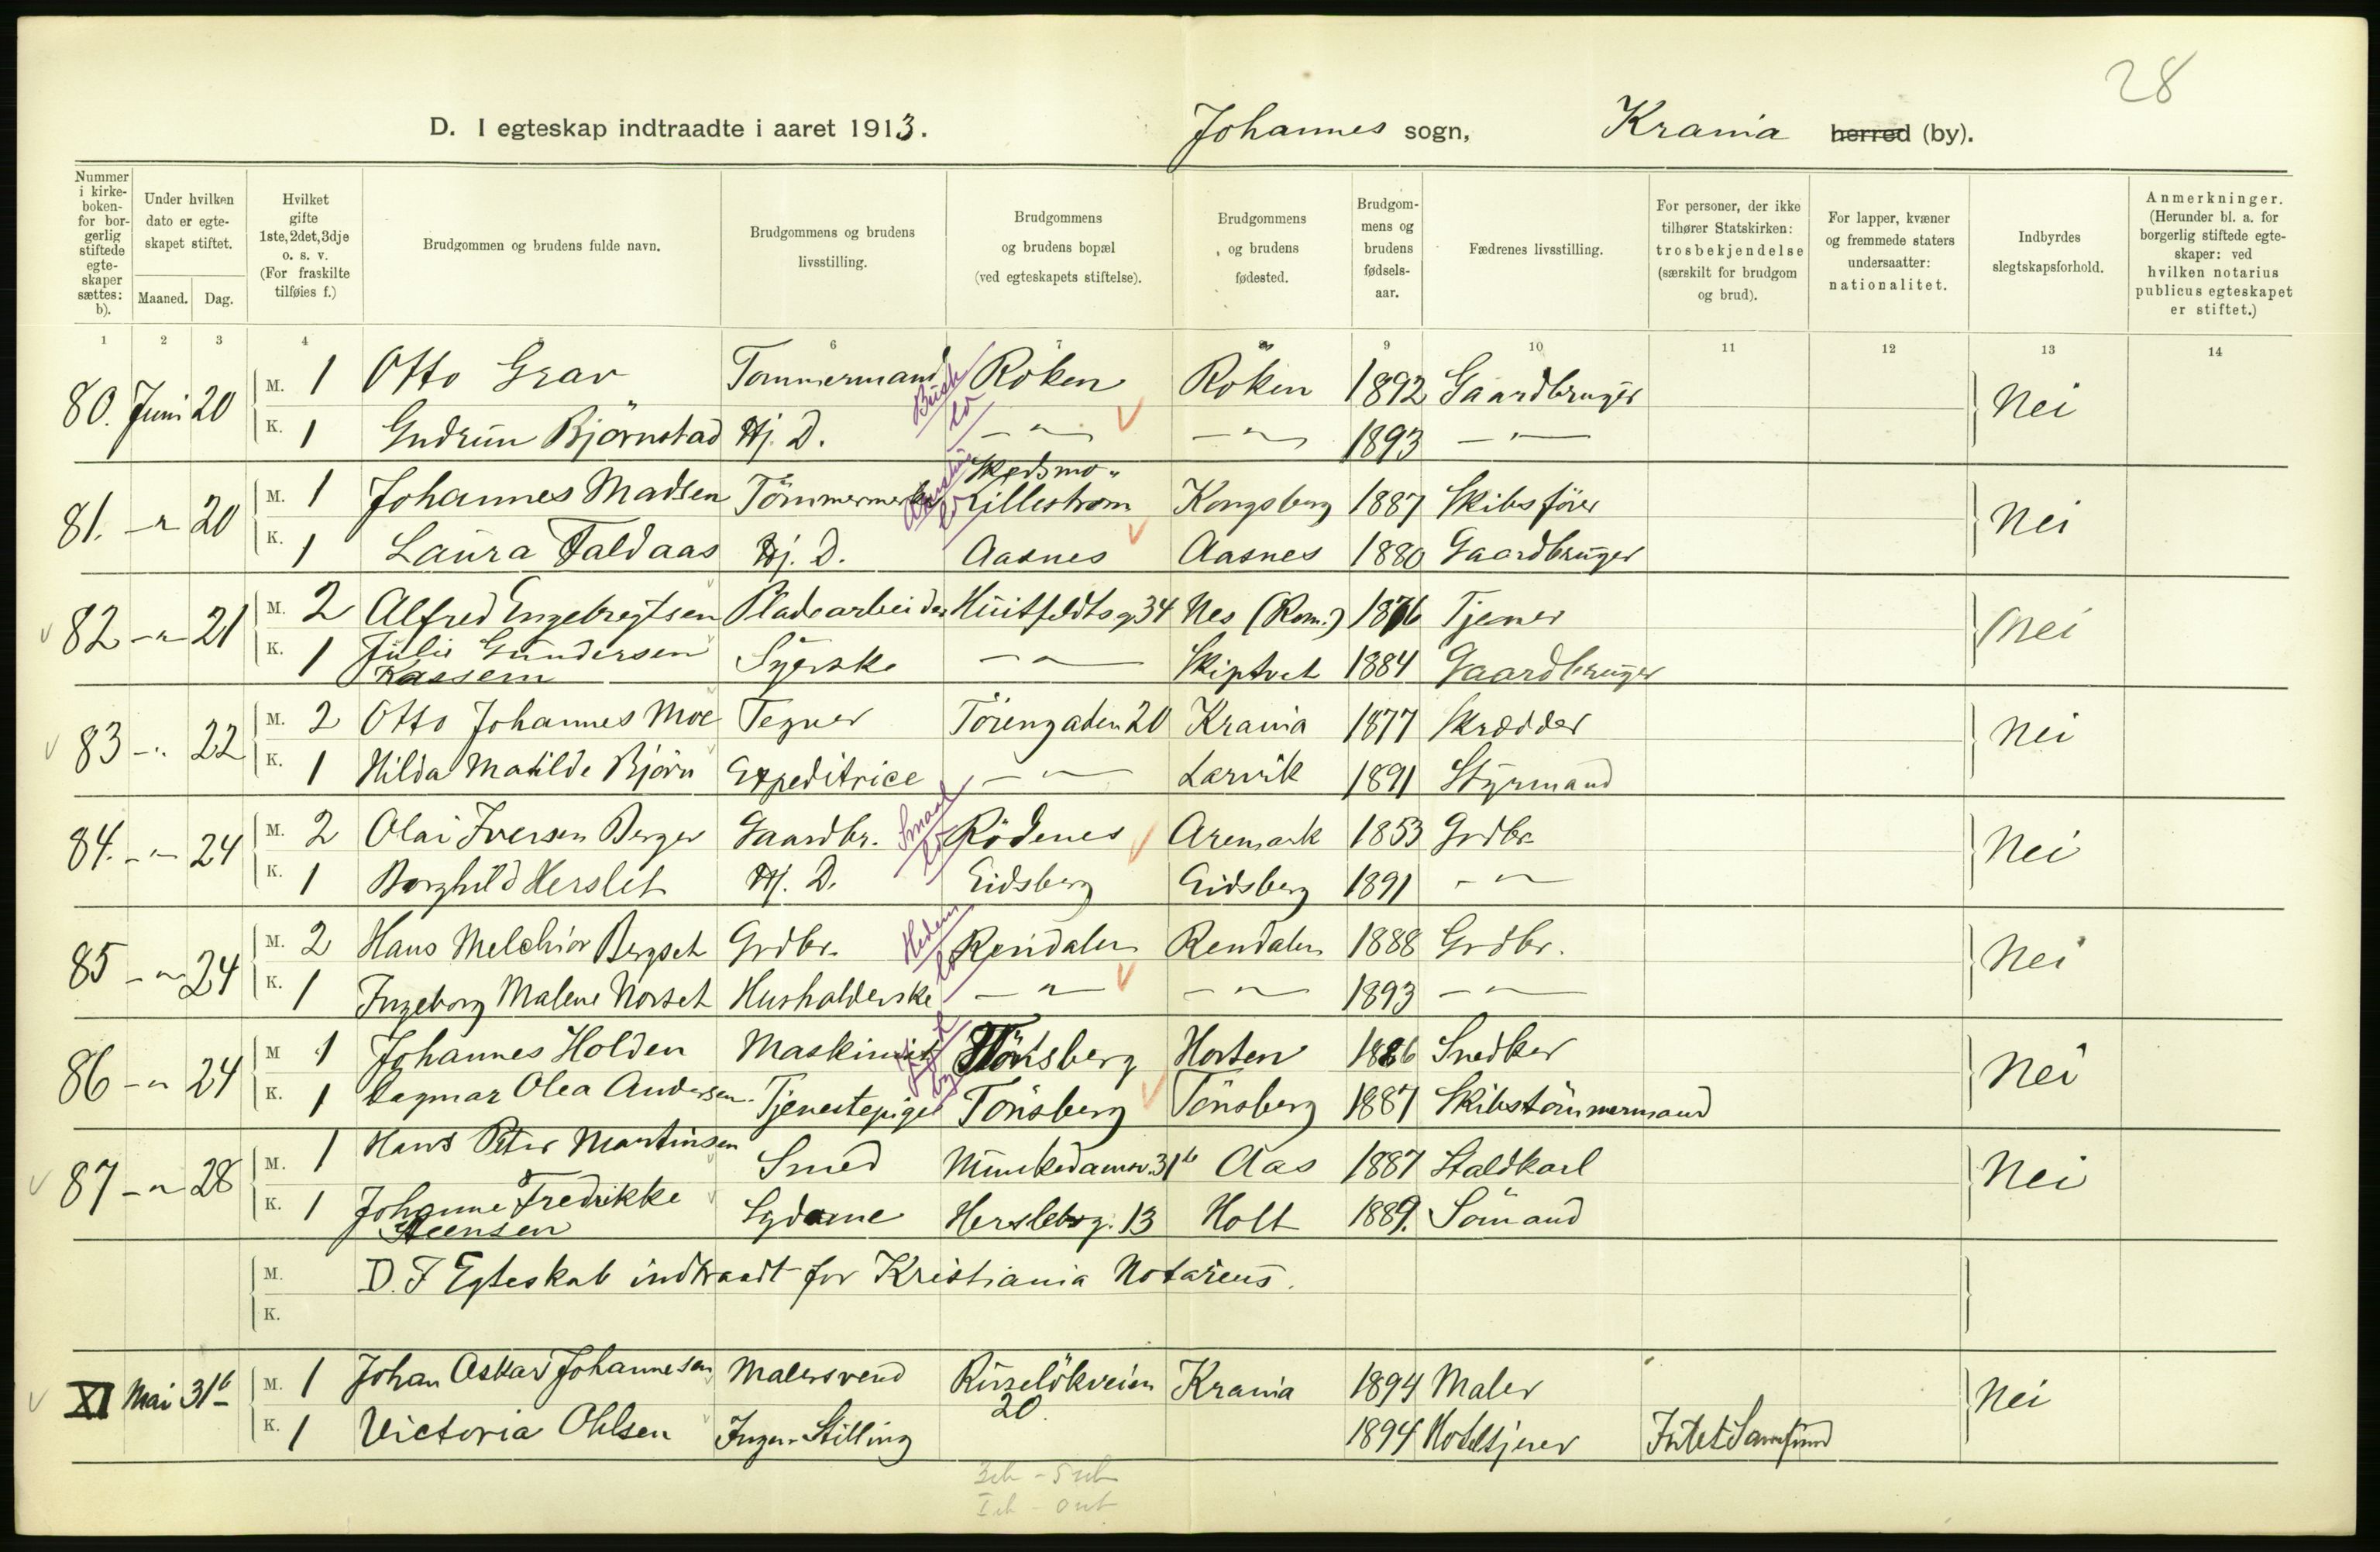 28
D. I egteskap indtraadte i aaret 1913. Johannes sogn, Krania herred (by).
Nummer i kirke-boken- for bor-gerlig stiftede egte-skaper sættes: b).
Under hvilken dato er egte-skapet stiftet.
Maaned. Dag.
Hvilket gifte 1ste, 2det, 3dje o. s. v. (For fraskilte tilføies f.)
Brudgommen og brudens fulde navn.
Brudgommens og brudens livsstilling.
Brudgommens og brudens bopæl (ved egteskapets stiftelse).
Brudgommens og brudens fødested.
Brudgom-mens og brudens fødsels-aar.
Fædrenes livsstilling.
For personer, der ikke tilhører Statskirken: trosbekjendelse (særskilt for brudgom og brud).
For lapper, kvæner og fremmede staters undersaatter: nationalitet.
Indbyrdes slegtskapsforhold.
Anmerkninger. (Herunder bl. a. for borgerlig stiftede egte-skaper: ved hvilken notarius publicus egteskapet er stiftet.)
1 2 3 4 5 6 7 8 9 10 11 12 13 14
80. Juni 20 M. 1 Otto Grav Tømmermand Røken Røken 1892 Gaardbruger Nei
K. 1 Gudrun Bjørnstad Hj. D. — " — — " — 1893 — " —
81. - " - 20 M. 1 Johannes Madsen Tömmermerker Skedsmo Lillestrøm Kongsberg 1887 Skibsfører Nei
K. 1 Laura Faldaas Hj. D. Aasnes Aasnes 1880 Gaardbruger
82 - " - 21 M. 2 Alfred Engebregtsen Pladearbeider Huitfeldtsg 34 Nes (Rom.) 1876 Tjener Nei
K. 1 Julie Gundersen Kassem Syerske — " — Skiptvet 1884 Gaardbruger
83 - " - 22 M. 2 Otto Johannes Moe Tegner Törengaden 20 Krania 1877 Skrædder Nei
K. 1 Hilda Matilde Björn Expeditrice — " — Larvik 1891 Styrmand
84. - " - 24 M. 2 Olai Iversen Berger Gaardbr. Smaal Rödenes Aremark 1853 Grdbr. Nei
K. 1 Borghild Herslet Hj. D. Eidsberg Eidsberg 1891 - " -
85 - " - 24 M. 2 Hans Melchior Bergset Grdbr. Hedem Rendalen Rendalen 1888 Grdbr. Nei
K. 1 Ingeborg Malene Norset Husholderske — " — — " — 1893 — " —
86 - " - 24 M 1 Johannes Holden Maskinist Tönsberg Horten 1886 Snedker Nei
K. 1 Dagmar Olea Andersen Tjenestepige Tönsberg Tönsberg 1887 Skibstömmermand
87 - " - 28 M. 1 Hans Peter Martinsen Smed Munkedamsv. 31b Aas 1887 Staldkarl Nei
K. 1 Johanne Fredrikke Steensen Sydame Herslebsg. 13 Holt 1889. Sömand
M. D. I Egteskab indtraadt for Kristiania Notarius.
K.
XI Mai 31te M. 1 Johan Oskar Johannesen Malersvend Ruseløkveien 20. Krania 1894 Maler Nei
K. 1 Victoria Ohlsen Ingen Stilling 1894 Hoteltjener Intet Samfund